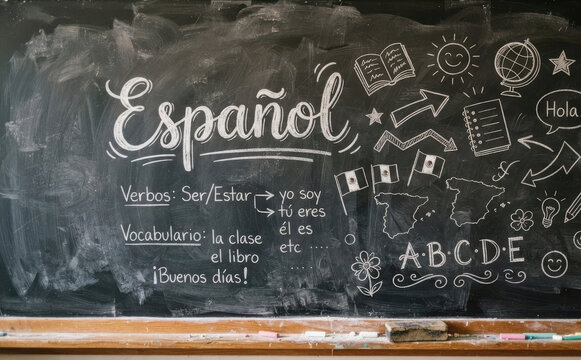 Español
Hola
Verbos: Ser/Estar yo soy
tú eres
él es
etc .....
Vocabulario: la clase
el libro
¡Buenos días!
A·B·C·D·E